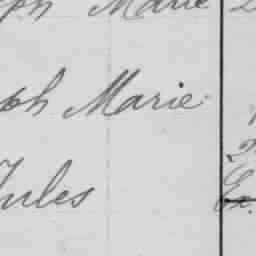 ph Marie
ph Marie
Jules